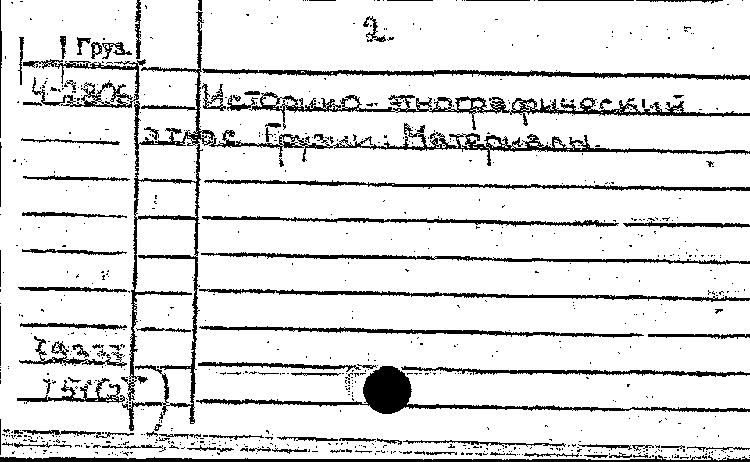 2.
Груз.
Ч-2806 Историко-этнографический
атлас Грузии: Материалы.